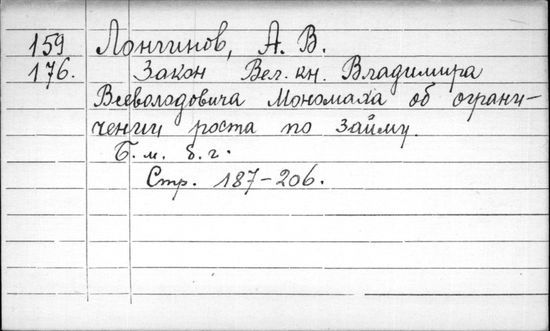 159 Лонгинов, А. В.
176. Закон Вел. кн. Владимира
Всеволодовича Мономаха об ограни-
чении роста по займу.
Б. м. б. г.
Стр. 187-206.